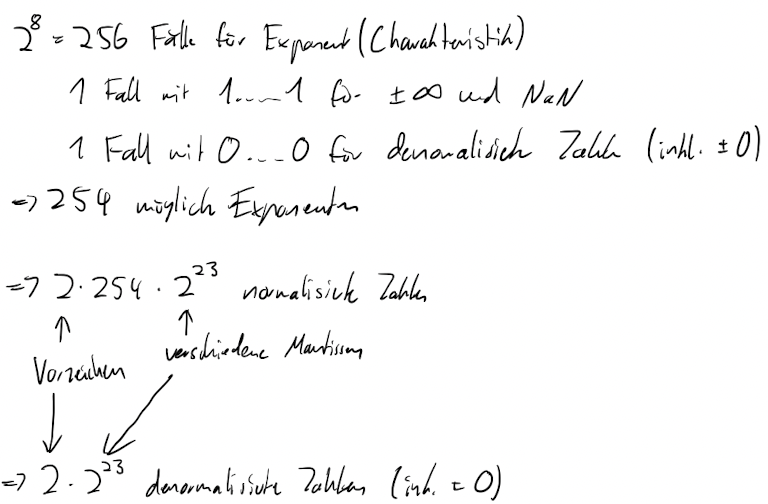 2^8 = 256 Fälle für Exponent (Charakteristik)
1 Fall mit 1....1 für ±∞ und NaN
1 Fall mit 0...0 für denormalisierte Zahlen (inkl. ±0)
=> 254 mögliche Exponenten
=> 2·254·2^23 normalisierte Zahlen
↑ ↑
Vorzeichen verschiedene Mantissen
=> 2·2^23 denormalisierte Zahlen (inkl. ±0)